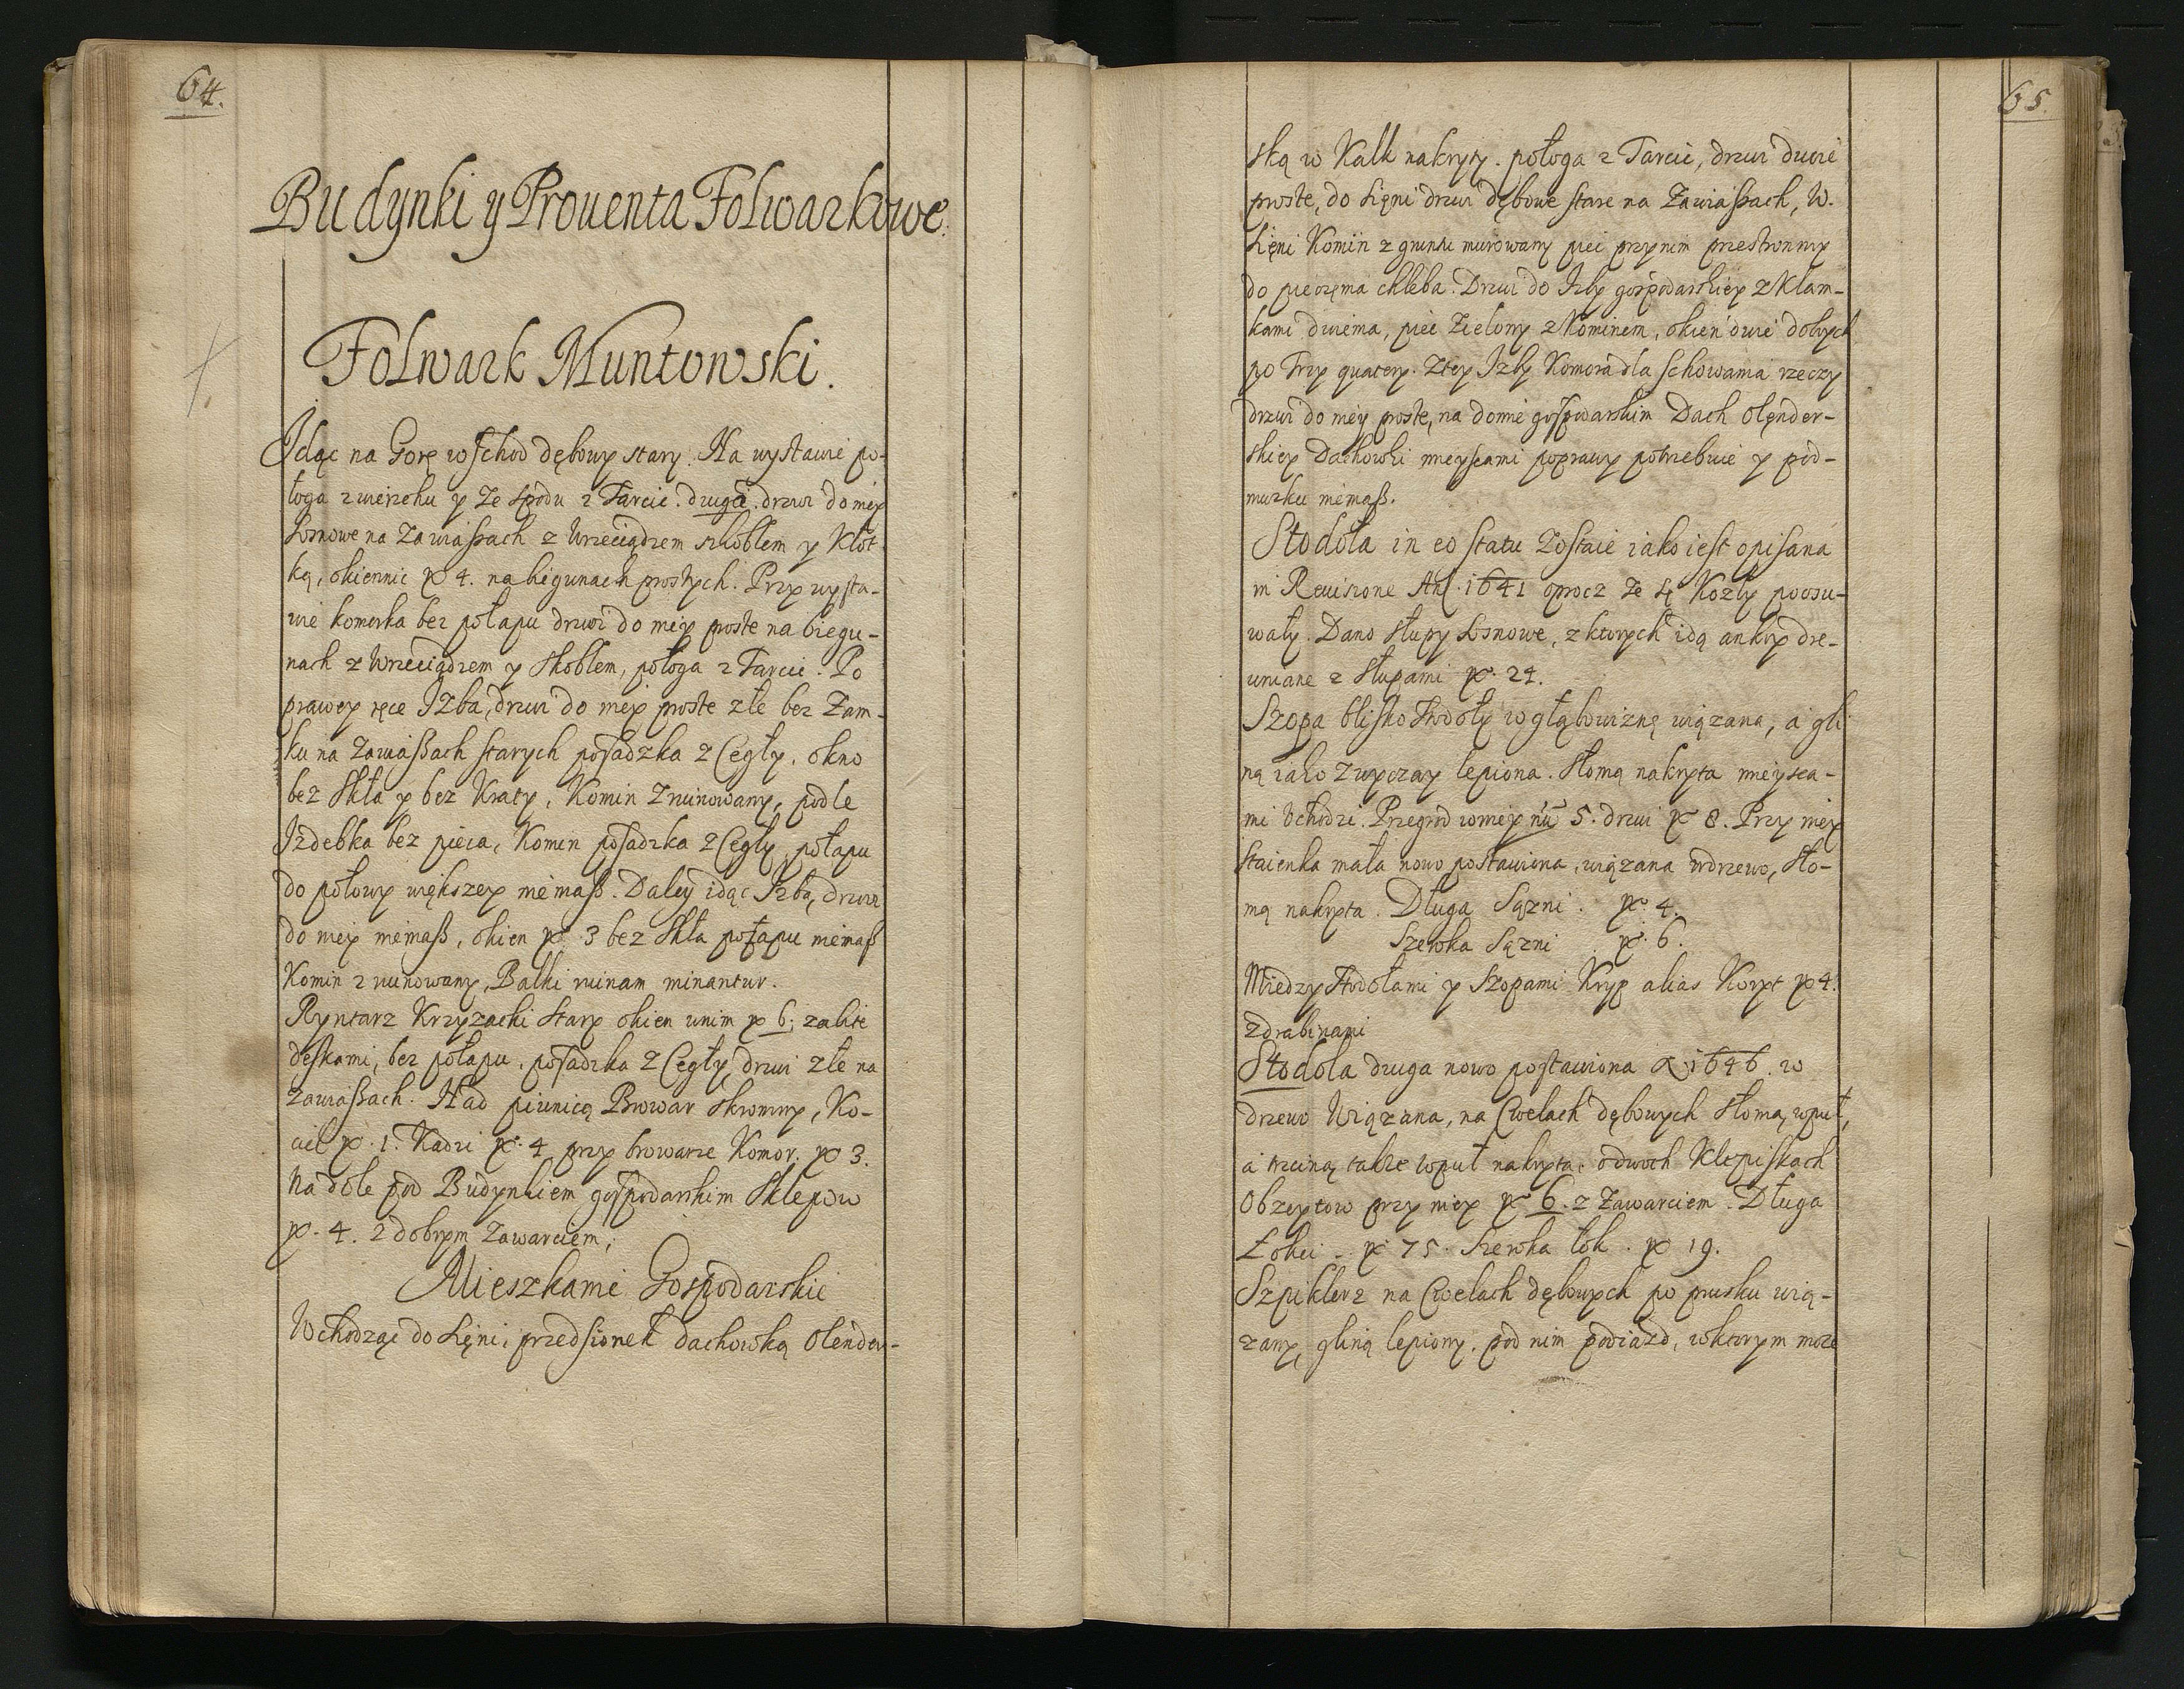 64.
Budynki y Prouenta Folwarkowe.
Folwark Muntowski.
Idąc na Gorę wschod dębowy stary. Na wystawie po-
łoga z wierzchu y ze spodu z Tarcic. druga. drzwi do niey
Sosnowe na Zawiasach z Wrzeciądzem skoblem y Kłot
ką, okiennic № 4. na biegunach prostych. Przy wysta-
wie komorka bez połapu drzwi do niey proste na biegu-
nach z Wrzeciądzem y skoblem, połoga z Tarcic. Po
prawey ręce Izba, drzwi do niey proste złe bez Zam-
ku na Zawiaßach starych posadzka z Cegły. okno
bez Skła y bez Kraty, Komin Zruinowany, podle
Izdebka bez pieca, Komin posadzka z Cegły, połapu
do połowy większey niemaß. Daley idąc Izba, drzwi
do niey niemaß, okien № 3 bez Skła połapu niemaß
Komin zruinowany, Balki ruinam minantur.
Ryntarz Krzyzacki stary okien wnim № 6; zabite
deskami, bez połapu. posadzka z Cegły drzwi złe na
Zawiaßach. Nad piwnicą Browar skromny, Ko-
cieł № 1. Kadzi № 4 przy browarze Komor. № 3.
Na dole pod Budynkiem gospodarskim Sklepow
№ 4. z dobrym Zawarciem;
Mieszkanie Gospodarskie
Wchodząc do Sięni, przedsionek dachowką Olender-
65
ską w Kalk nakryty. połoga z Tarcic, drzwi dwie
proste, do Sięni drzwi dębowe stare na Zawiaßach, W.
Sięni Komin z gruntu murowany piec przynim przestronny
do pieczęnia chleba. Drzwi do Izby gospodarskiey z Klam-
kami dwiema, piec Zielony z Kominem, okien dwie dobrych
po Trzy quatery. Ztey Izby Komora dla schowania rzeczy
drzwi do niey proste, na domie gospodarskim Dach Olęnder-
skiey Dachowki mieyscami poprawy potrzebuie y pod-
murku niemaß.
Stodoła in eo statu Zostaie iako iest opisana
in Reuisione An 1641 oprocz że się Kozły poosu-
wały. Dano słupy Sosnowe, z ktorych idą ankry dre-
wniane z słupami № 24.
Szopa blisko Stodoły w głąbowiznę wiązana, a gli
ną iako Zwyczay lepiona. Słomą nakryta mieysca-
mi Vchodzi. Przegrod w niey nu 5. drzwi № 8. Przy niey
stąienka mała nowo postawiona, wiązana wdrzewo, sło-
mą nakryta. Długa Sązni. № 4.
Szeroka Sązni № 6.
Miedzy Stodołami y Szopami Kryp alias Koryt № 4.
z drabinami
Stodoła druga nowo postawiona A 1646. w
drzewo Wiązana, na Cwelach dębowych słomą wpuł,
a trciną także wpuł nakryta. o dwoch Klepiskach
Obzeytow przy niey № 6. z Zawarciem. Długa
Łokci - № 75. Szeroka łok. № 19.
Szpiklerz na Cwelach dębowych po prusku wią-
zany, gliną lepiony. pod nim podiazd, wktorym może